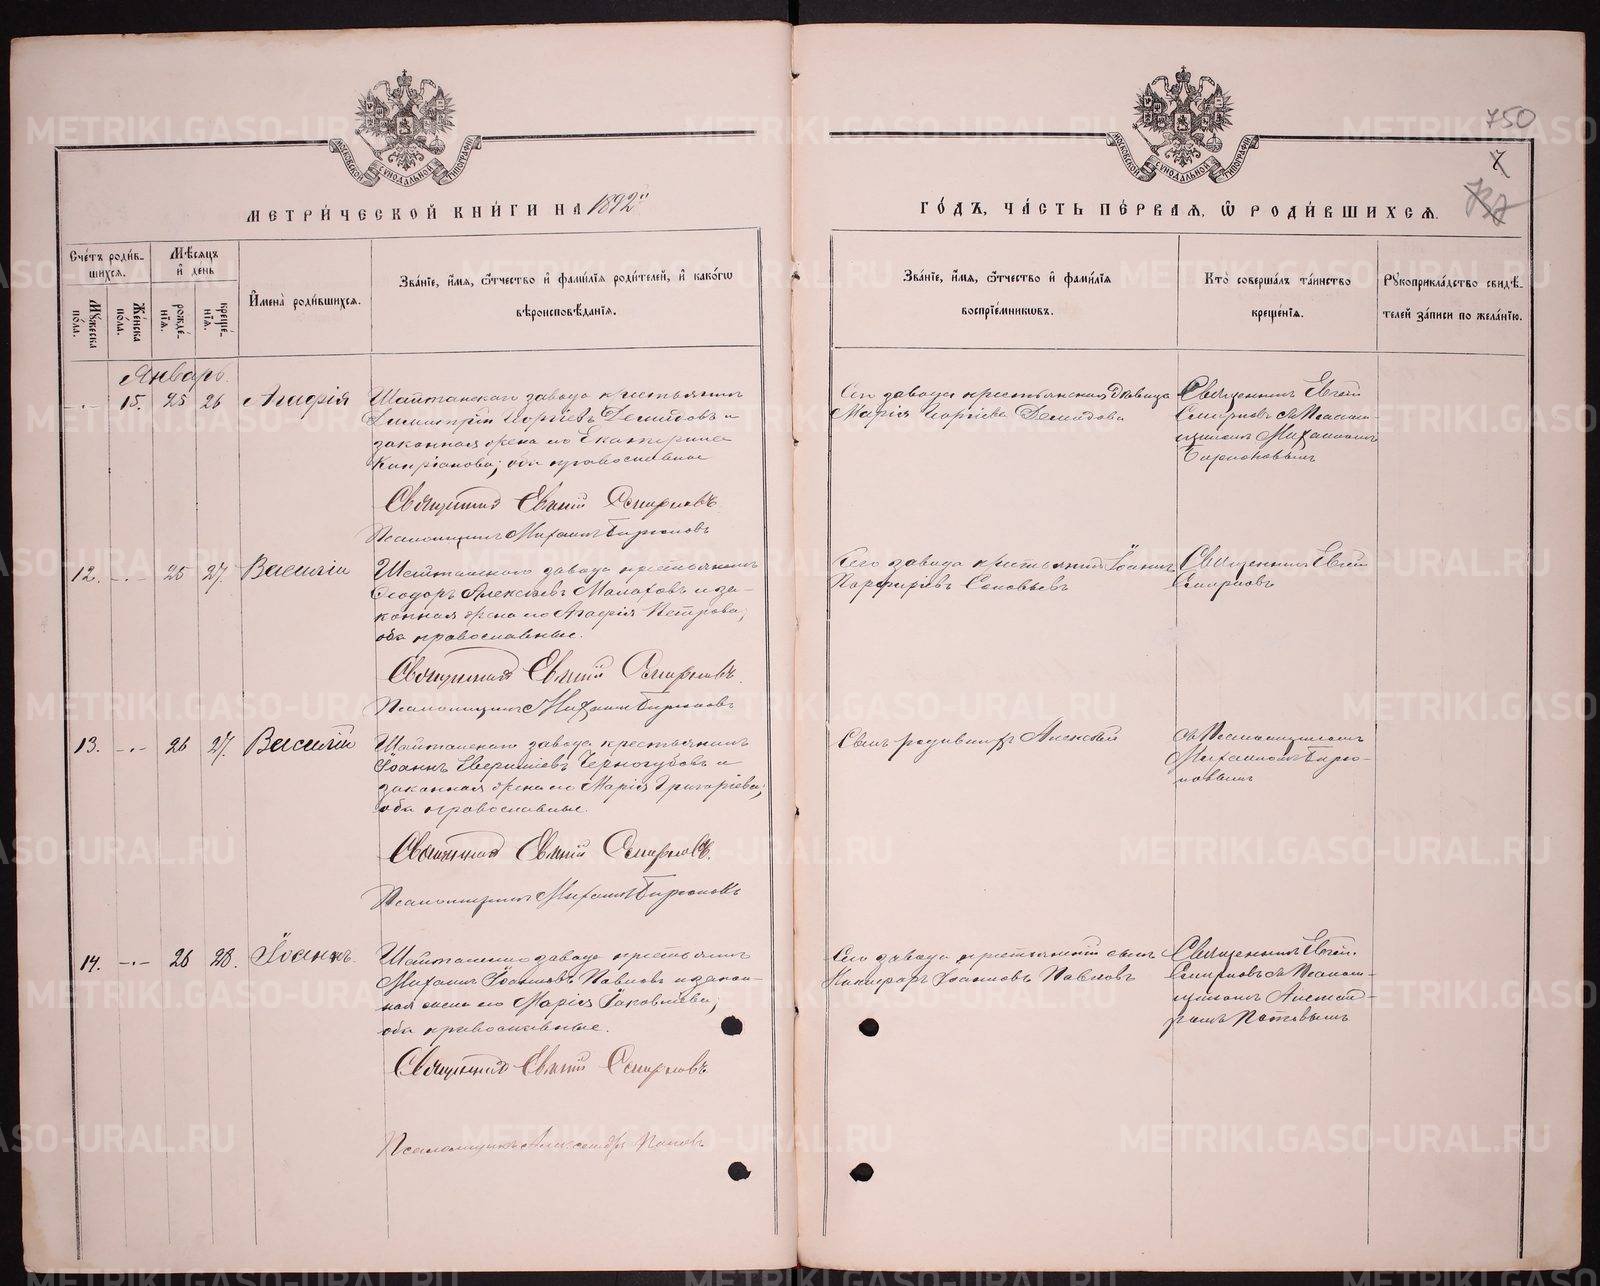 750
7
МОСКОВСКОЙ СѴНОДАЛЬНОЙ ТИПОГРАФІИ
МОСКОВСКОЙ СѴНОДАЛЬНОЙ ТИПОГРАФІИ
МЕТРИ́ЧЕСКОЙ КНИ́ГИ НА 1892й
ГО́ДЪ, ЧА́СТЬ ПЕ́РВАЯ, Ѡ РОДИ́ВШИХСЯ.
Сче́тъ роди́вшихся.
Мѣсяцъ и день
Мꙋ́жеска по́ла.
Же́нска по́ла.
рожде́нїя.
креще́нїя.
И҆мена̀ роди́вшихся.
Зва́нїе, и҆́мя, ѻ҆́тчество и҆ фами́лїя роди́телей, и҆ како́гѡ
вѣроисповѣ́данїя.
Зва́нїе, и҆́мя, ѻ҆́тчество и҆ фами́лїя
воспрїе́мникѡвъ.
Кто̀ соверша́лъ та́инство
креще́нїя.
Рꙋкоприкла́дство свидѣ́-
телей за́писи по жела́нїю.
Январь.
15. 25 26 Агафія
Шайтанскаго завода крестьянинъ
Димитрій Георгіевъ Демидовъ и
законная жена его Екатерина
Кипріанова; оба православные
Священникъ Евгеній Смирновъ
Псаломщикъ Михаилъ Бирюковъ
Сего завода крестьянская девица
Марія Георгіева Демидова
Священникъ Евгеній
Смирновъ съ Псалом-
щикомъ Михаиломъ
Бирюковымъ
12. 25 27. Василій
Шайтанскаго завода крестьянинъ
Ѳеодоръ Алексѣевъ Малаховъ и за-
конная жена его Агафія Петрова;
оба православные.
Священникъ Евгеній Смирновъ.
Псаломщикъ Михаилъ Бирюковъ
Сего завода крестьянинъ Іоаннъ
Порфирьевъ Соловьевъ
Священникъ Евгеній
Смирновъ
13. 26 27. Василій
Шайтанскаго завода крестьянинъ
Іоаннъ Черногубовъ и
законная жена его Марія Григоріева;
оба православные.
Священникъ Евгеній Смирновъ.
Псаломщикъ Михаилъ Бирюковъ
Сынъ родившихъ Алексѣй
съ Псаломщикомъ
Михаиломъ Бирю-
ковымъ
14. 26 28. Іоаннъ.
Шайтанскаго завода крестьянинъ
Михаилъ Іоанновъ Павловъ и закон-
ная жена его Марія Іаковлева;
оба православные.
Священникъ Евгеній Смирновъ
Псаломщикъ Александръ Поповъ
Сего завода крестьянскій сынъ
Никифоръ Іоанновъ Павловъ
Священникъ Евгеній
Смирновъ съ Псалом-
щикомъ Алексан-
дромъ Поповымъ
METRIKI.GASO-URAL.RU